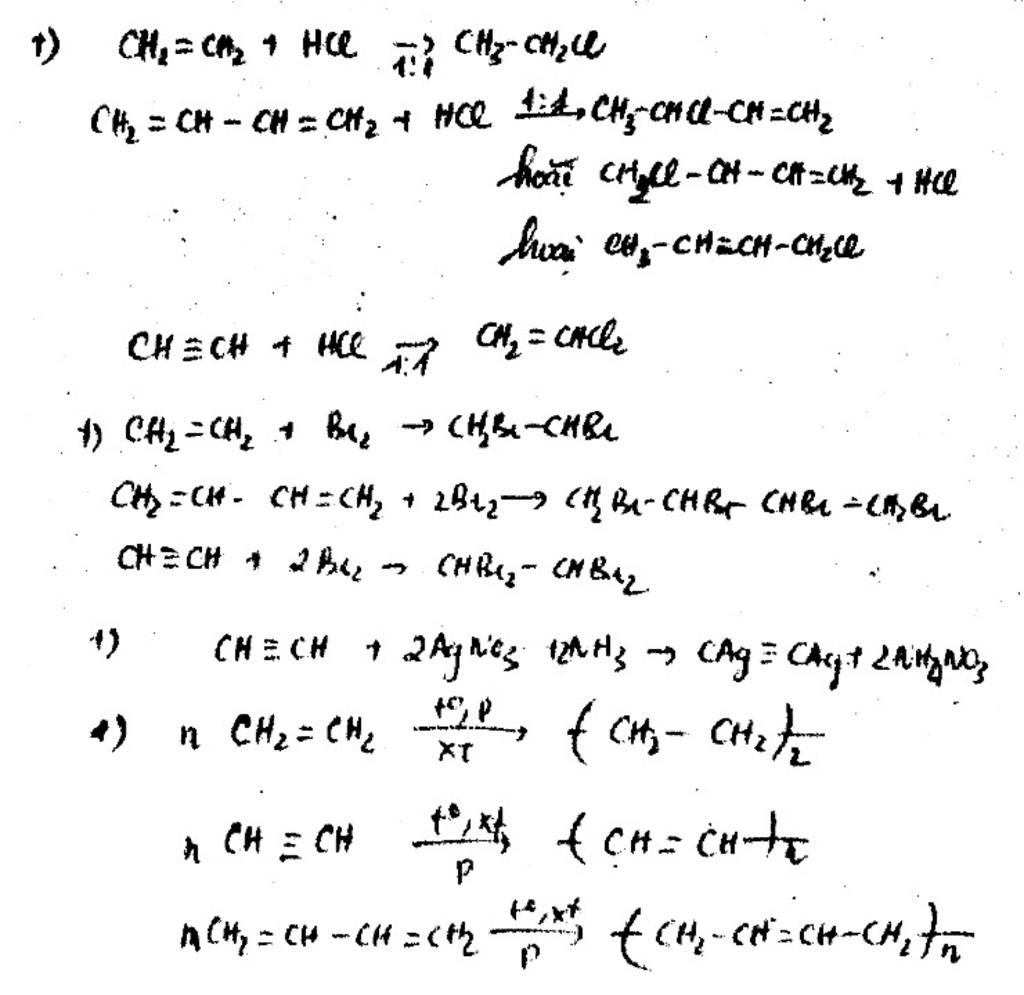 +) CH₂=CH₂ + HCl →1:1 CH₃-CH₂Cl
CH₂=CH-CH=CH₂ + HCl 1:1→ CH₃-CHCl-CH=CH₂
hoặc CH₂Cl-CH-CH=CH₂ + HCl
hoặc CH₃-CH=CH-CH₂Cl
CH≡CH + HCl →1:1 CH₂=CHCl₂
+) CH₂=CH₂ + Br₂ → CH₂Br-CHBr
CH₂=CH-CH=CH₂ + 2Br₂ → CH₂Br-CHBr-CHBr-CH₂Br
CH≡CH + 2Br₂ → CHBr₂-CHBr₂
+) CH≡CH + 2AgNO₃ + 2NH₃ → CAg≡CAg + 2NH₄NO₃
+) n CH₂=CH₂ t°,p→xt (CH₂-CH₂)₂
n CH≡CH t°,xt→p (CH=CH)n
nCH₂=CH-CH=CH₂ t°,xt→p (CH₂-CH=CH-CH₂)n